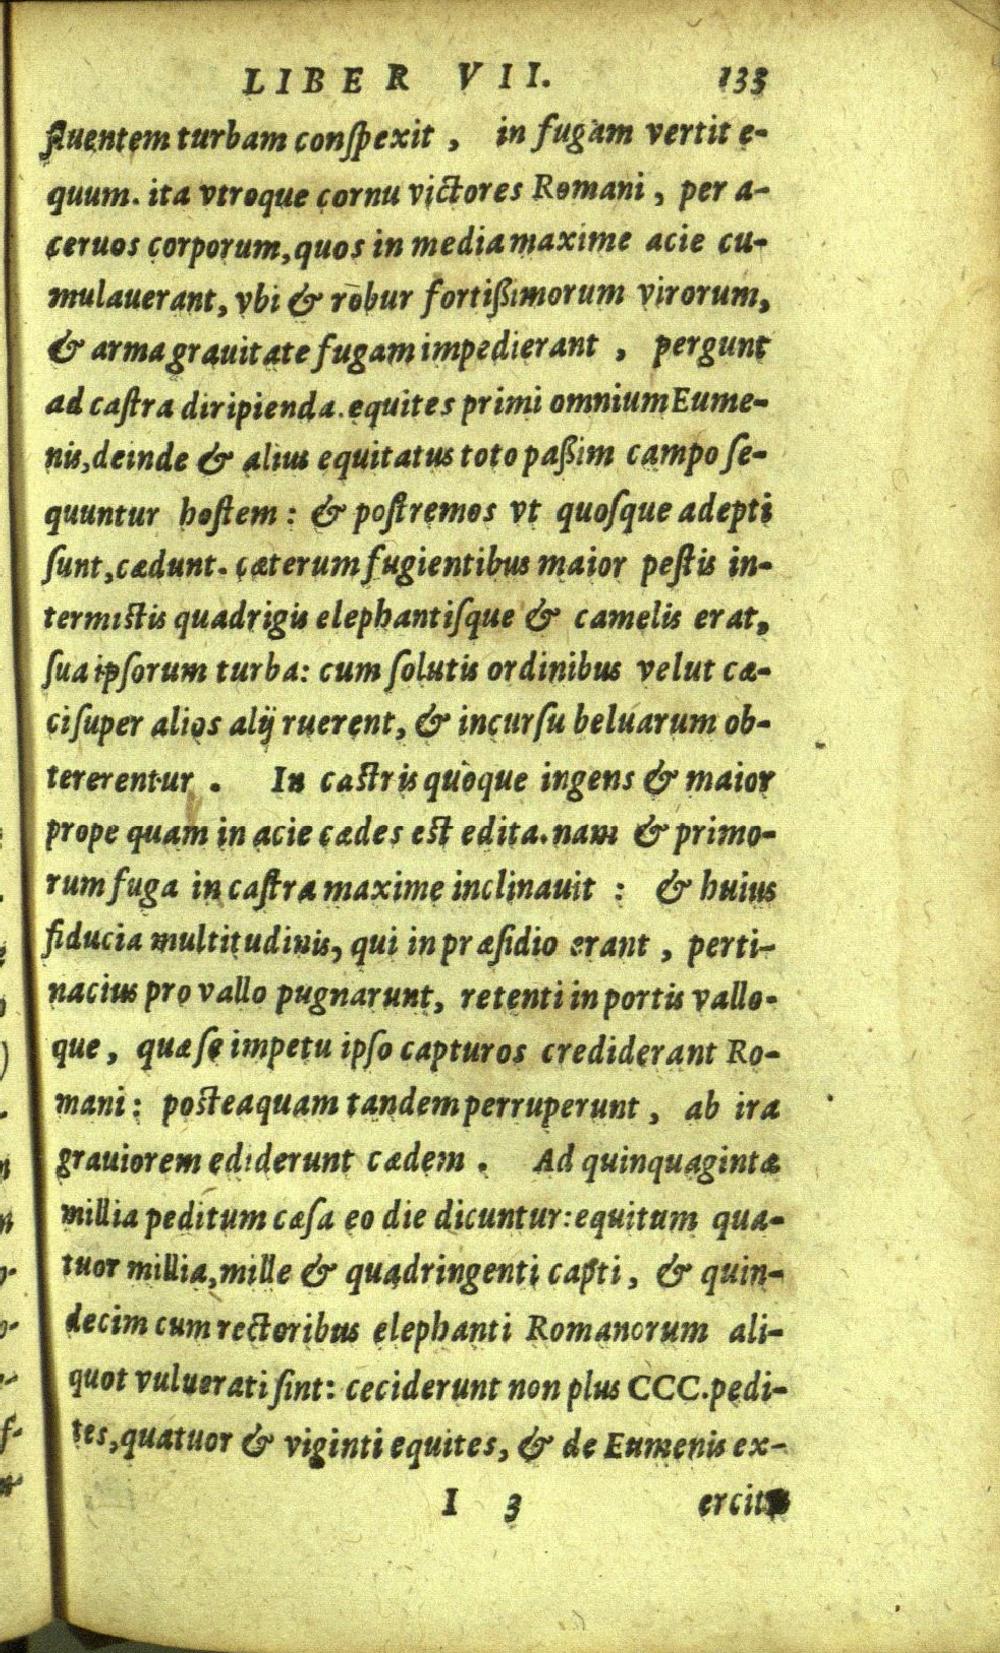 LIBER VII. 133
fluentem turbam conſpexit , in fugam vertit e-
quum. ita vtroque cornu victores Romani , per a-
ceruos corporum, quos in media maxime acie cu-
mulauerant, vbi & robur fortißimorum virorum,
& arma grauitate fugam impedierant , pergunt
ad caſtra diripienda. equites primi omnium Eume-
nis, deinde & alius equitatus toto paßim campo ſe-
quuntur hoſtem : & poſtremos vt quoſque adepti
ſunt, cædunt. cæterum fugientibus maior peſtis in-
termistis quadrigis elephantiſque & camelis erat,
ſua ipſorum turba: cum ſolutis ordinibus velut cæ-
ci ſuper alios alij ruerent, & incurſu beluarum ob-
tererentur . In castris quoque ingens & maior
prope quam in acie cædes est edita. nam & primo-
rum fuga in caſtra maxime inclinauit : & huius
fiducia multitudinis, qui in præſidio erant , perti-
nacius pro vallo pugnarunt, retenti in portis vallo-
que , quæ ſe impetu ipſo capturos crediderant Ro-
mani : posteaquam tandem perruperunt , ab ira
grauiorem ediderunt cædem . Ad quinquaginta
millia peditum cæſa eo die dicuntur: equitum qua-
tuor millia, mille & quadringenti capti, & quin-
decim cum rectoribus elephanti Romanorum ali-
quot vulnerati ſint: ceciderunt non plus CCC. pedi-
tes, quatuor & viginti equites, & de Eumenis ex-
I 3 ercitu